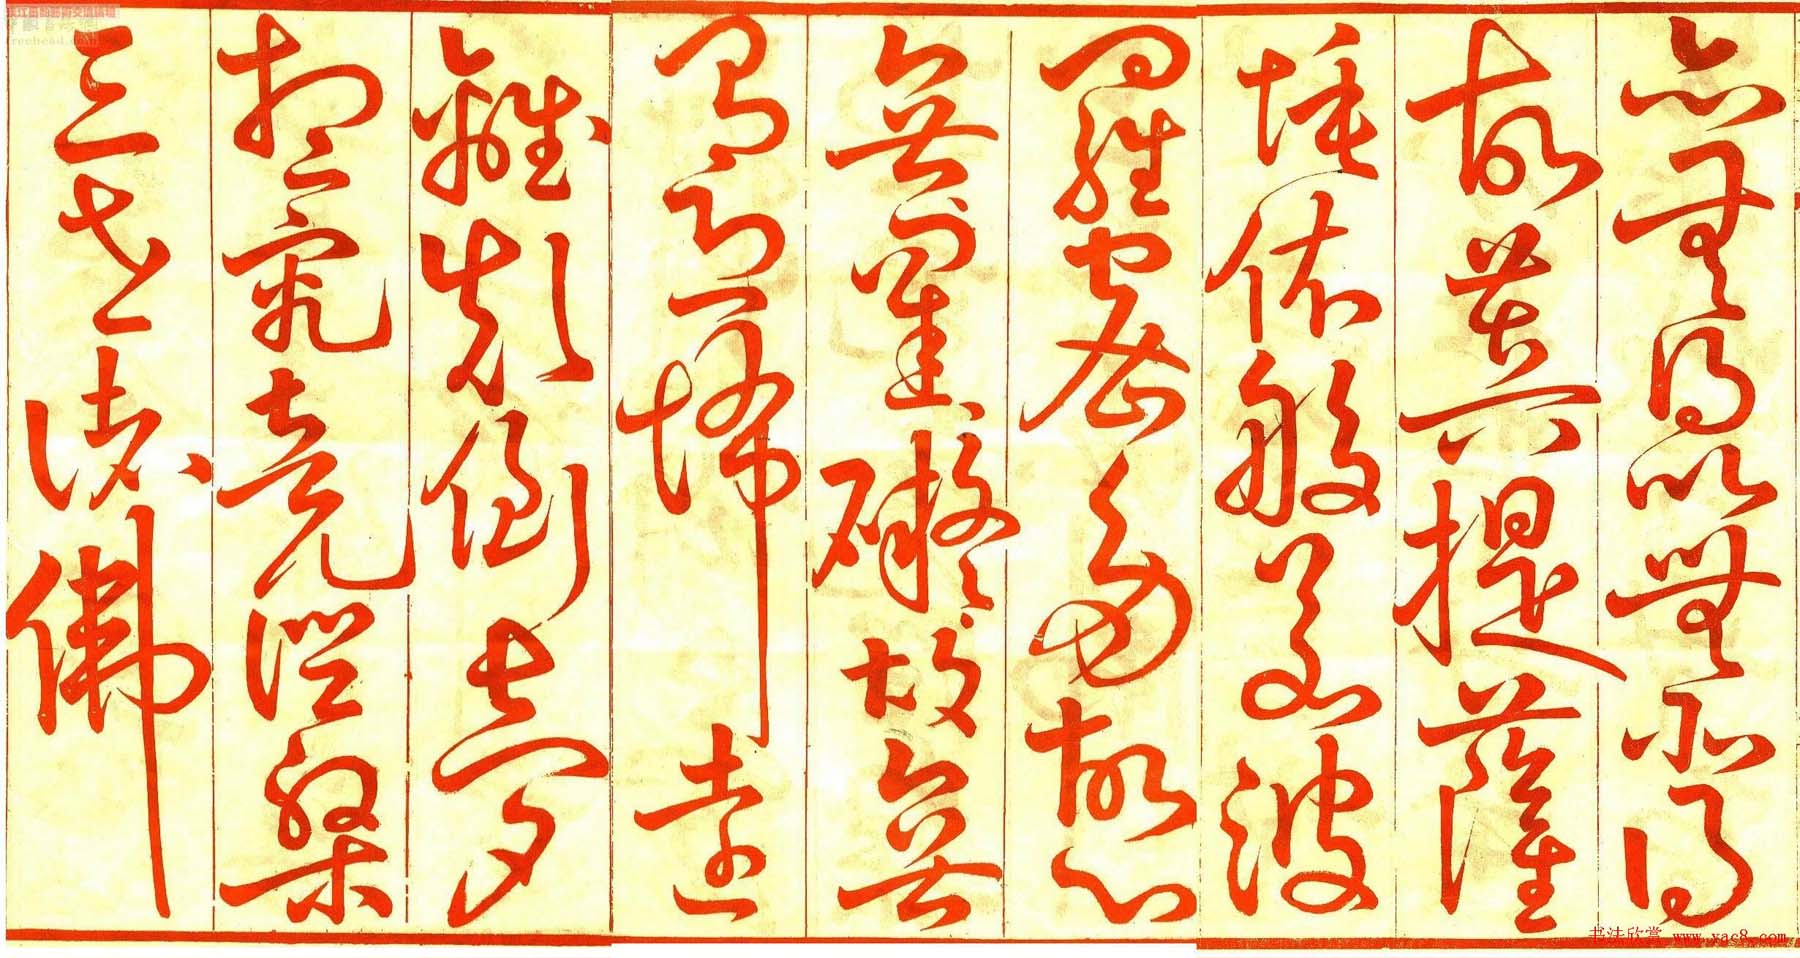 亦無得以無所得
故菩提薩
埵依般若波
羅蜜多故心
無罣礙故無
有恐怖遠
離顛倒夢
想究竟涅槃
三世諸佛
书法欣赏 www.yac8.com